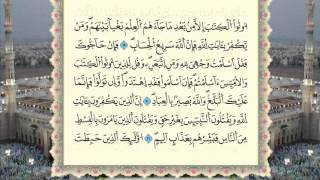 أُوتُوا۟ ٱلْكِتَٰبَ إِلَّا مِنۢ بَعْدِ مَا جَآءَهُمُ ٱلْعِلْمُ بَغْيًۢا بَيْنَهُمْ ۗ وَمَن
يَكْفُرْ بِـَٔايَٰتِ ٱللَّهِ فَإِنَّ ٱللَّهَ سَرِيعُ ٱلْحِسَابِ ۝ فَإِنْ حَآجُّوكَ
فَقُلْ أَسْلَمْتُ وَجْهِىَ لِلَّهِ وَمَنِ ٱتَّبَعَنِ ۗ وَقُل لِّلَّذِينَ أُوتُوا۟ ٱلْكِتَٰبَ
وَٱلْأُمِّيِّـۧنَ ءَأَسْلَمْتُمْ ۚ فَإِنْ أَسْلَمُوا۟ فَقَدِ ٱهْتَدَوا۟ ۖ وَّإِن تَوَلَّوْا۟ فَإِنَّمَا
عَلَيْكَ ٱلْبَلَٰغُ ۗ وَٱللَّهُ بَصِيرٌۢ بِٱلْعِبَادِ ۝ إِنَّ ٱلَّذِينَ يَكْفُرُونَ بِـَٔايَٰتِ
ٱللَّهِ وَيَقْتُلُونَ ٱلنَّبِيِّـۧنَ بِغَيْرِ حَقٍّ وَيَقْتُلُونَ ٱلَّذِينَ يَأْمُرُونَ بِٱلْقِسْطِ
مِنَ ٱلنَّاسِ فَبَشِّرْهُم بِعَذَابٍ أَلِيمٍ ۝ أُو۟لَٰٓئِكَ ٱلَّذِينَ حَبِطَتْ